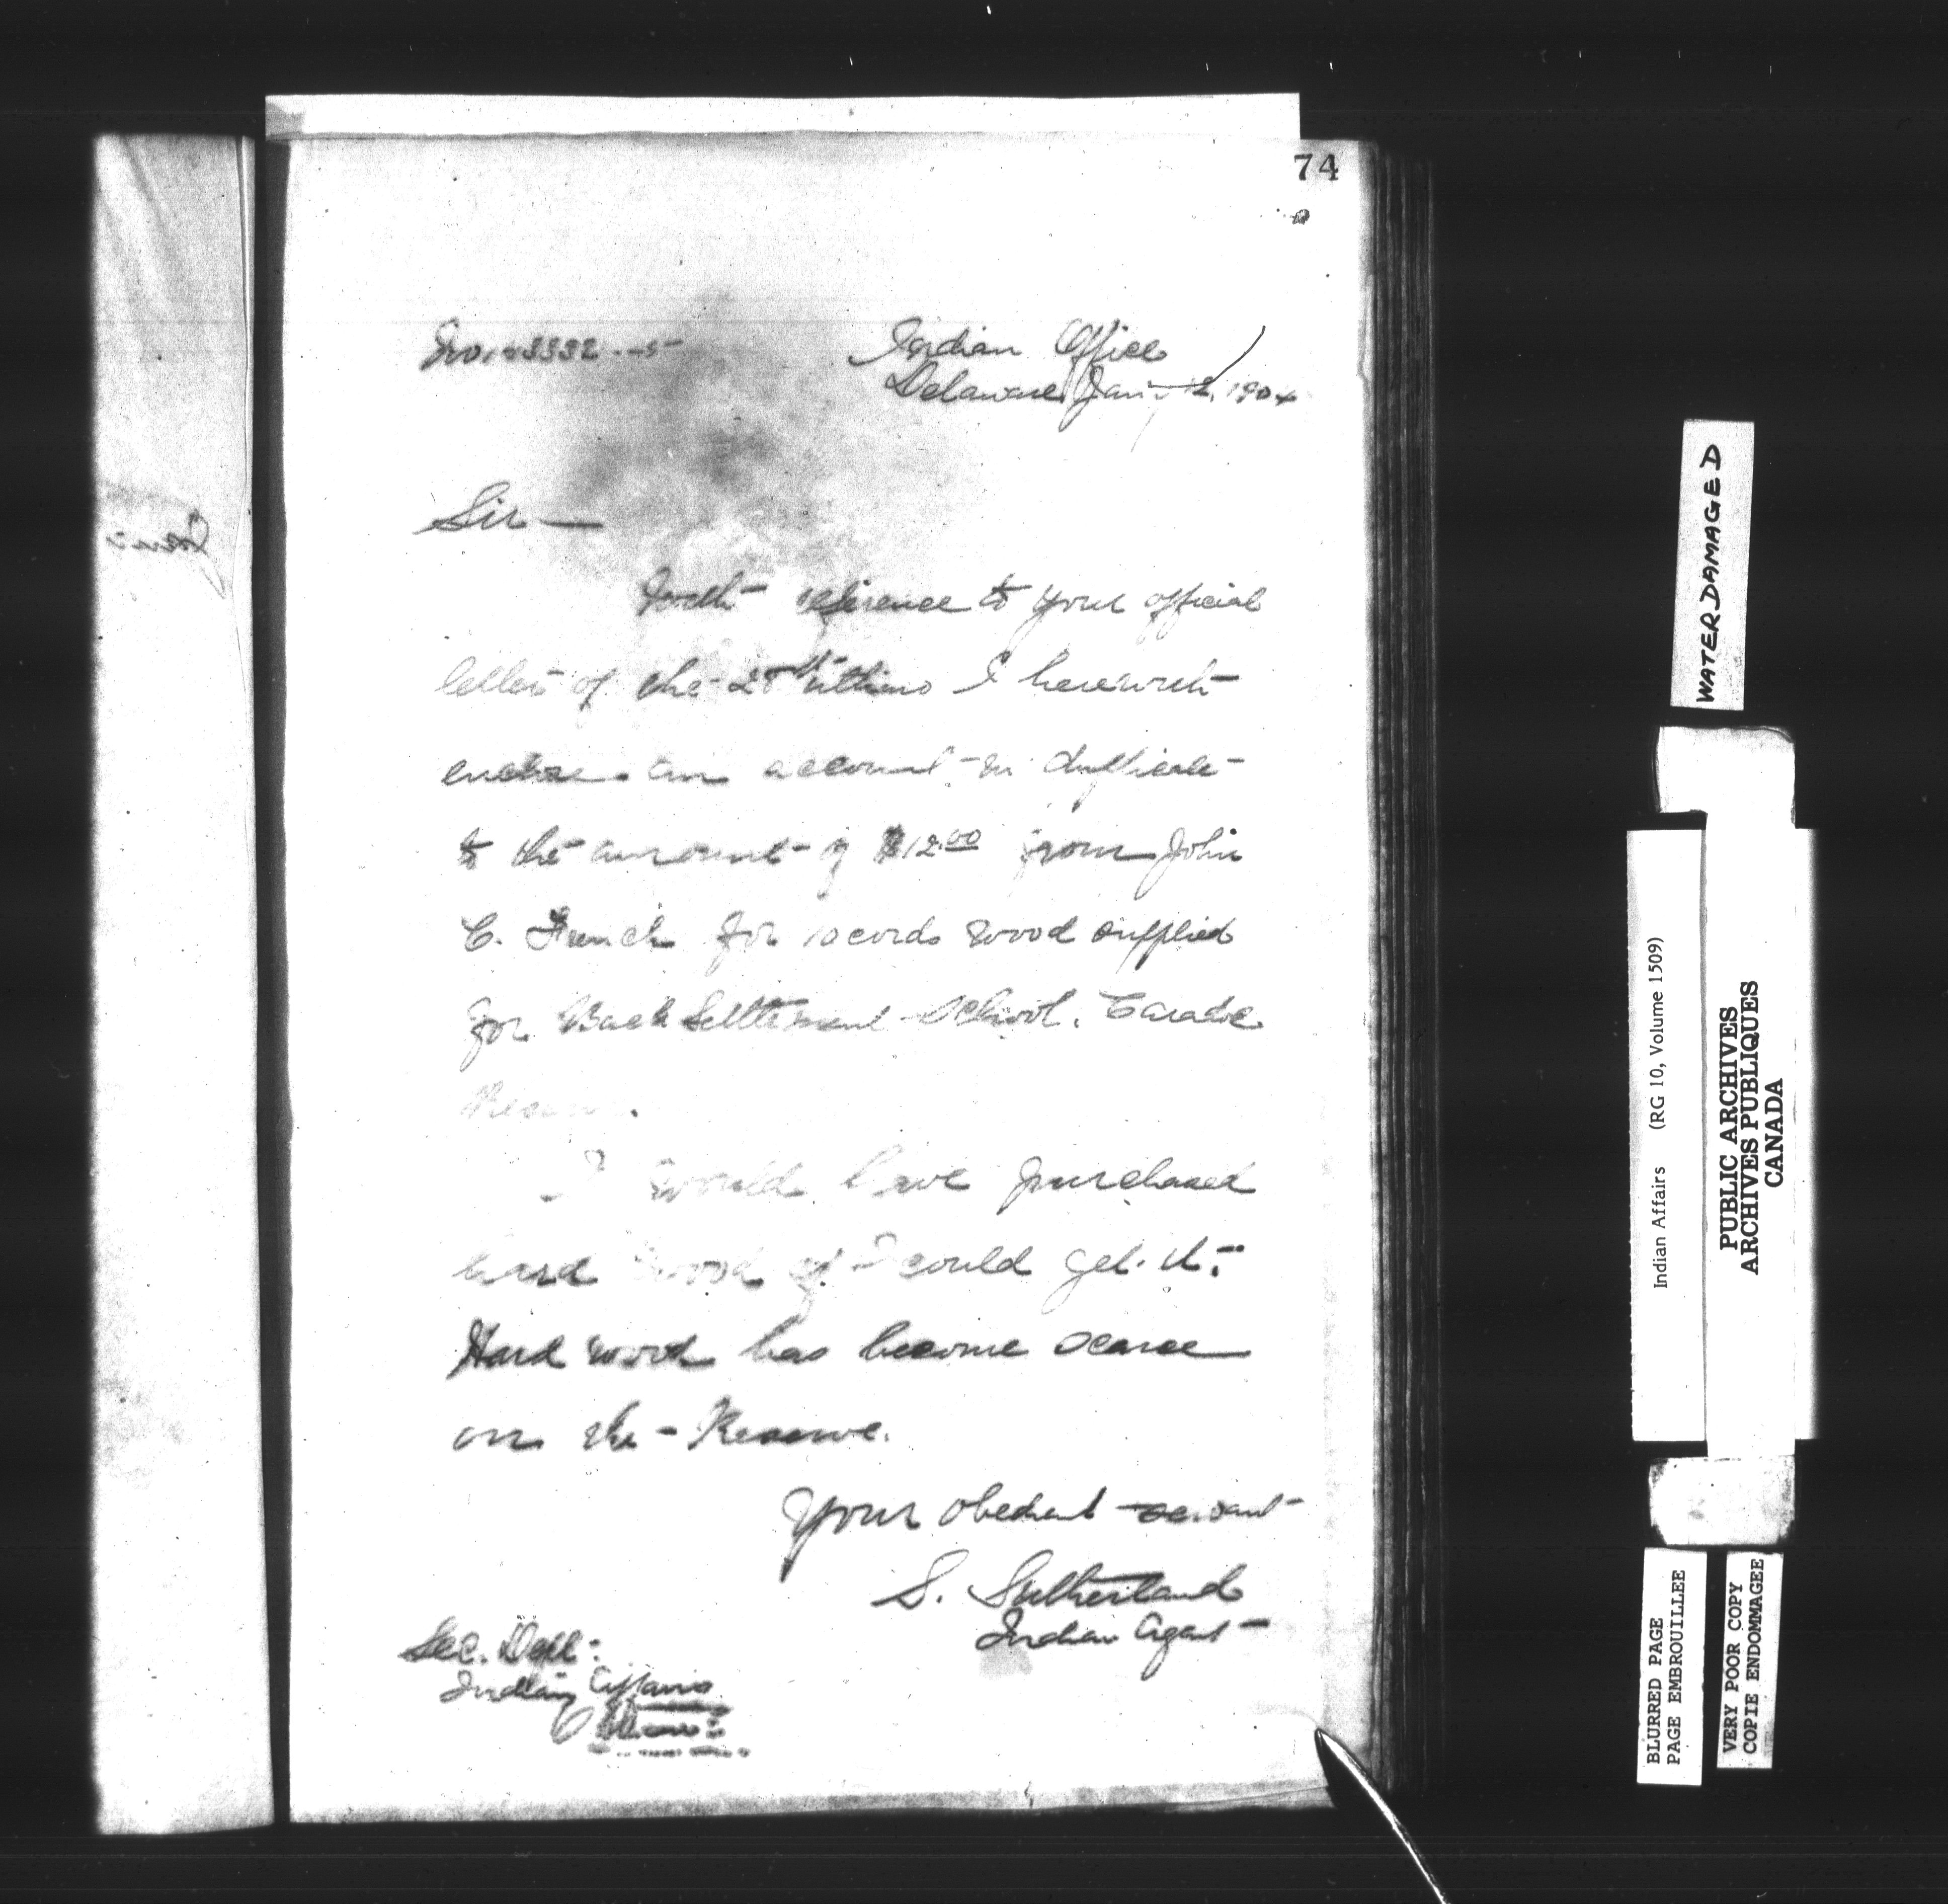 74
Indian Office
Delaware Jan'y 2, 1904
Sir —
With reference to your official
letter of the ultimo I herewith
enclose an account in duplicate
to the amount of $12.00 from John
C. French for cords wood supplied
for Back Settlement School. Caradoc
Reserve.
I would have purchased
hard wood if I could get it.
Hard wood has become scarce
on the Reserve.
Your obedient servant
S. Sutherland
Indian Agent
Sec. Dept.
Indian Affairs
Ottawa
WATERDAMAGED
Indian Affairs (RG 10, Volume 1509)
PUBLIC ARCHIVES
ARCHIVES PUBLIQUES
CANADA
BLURRED PAGE
PAGE EMBROUILLEE
VERY POOR COPY
COPIE ENDOMMAGEE